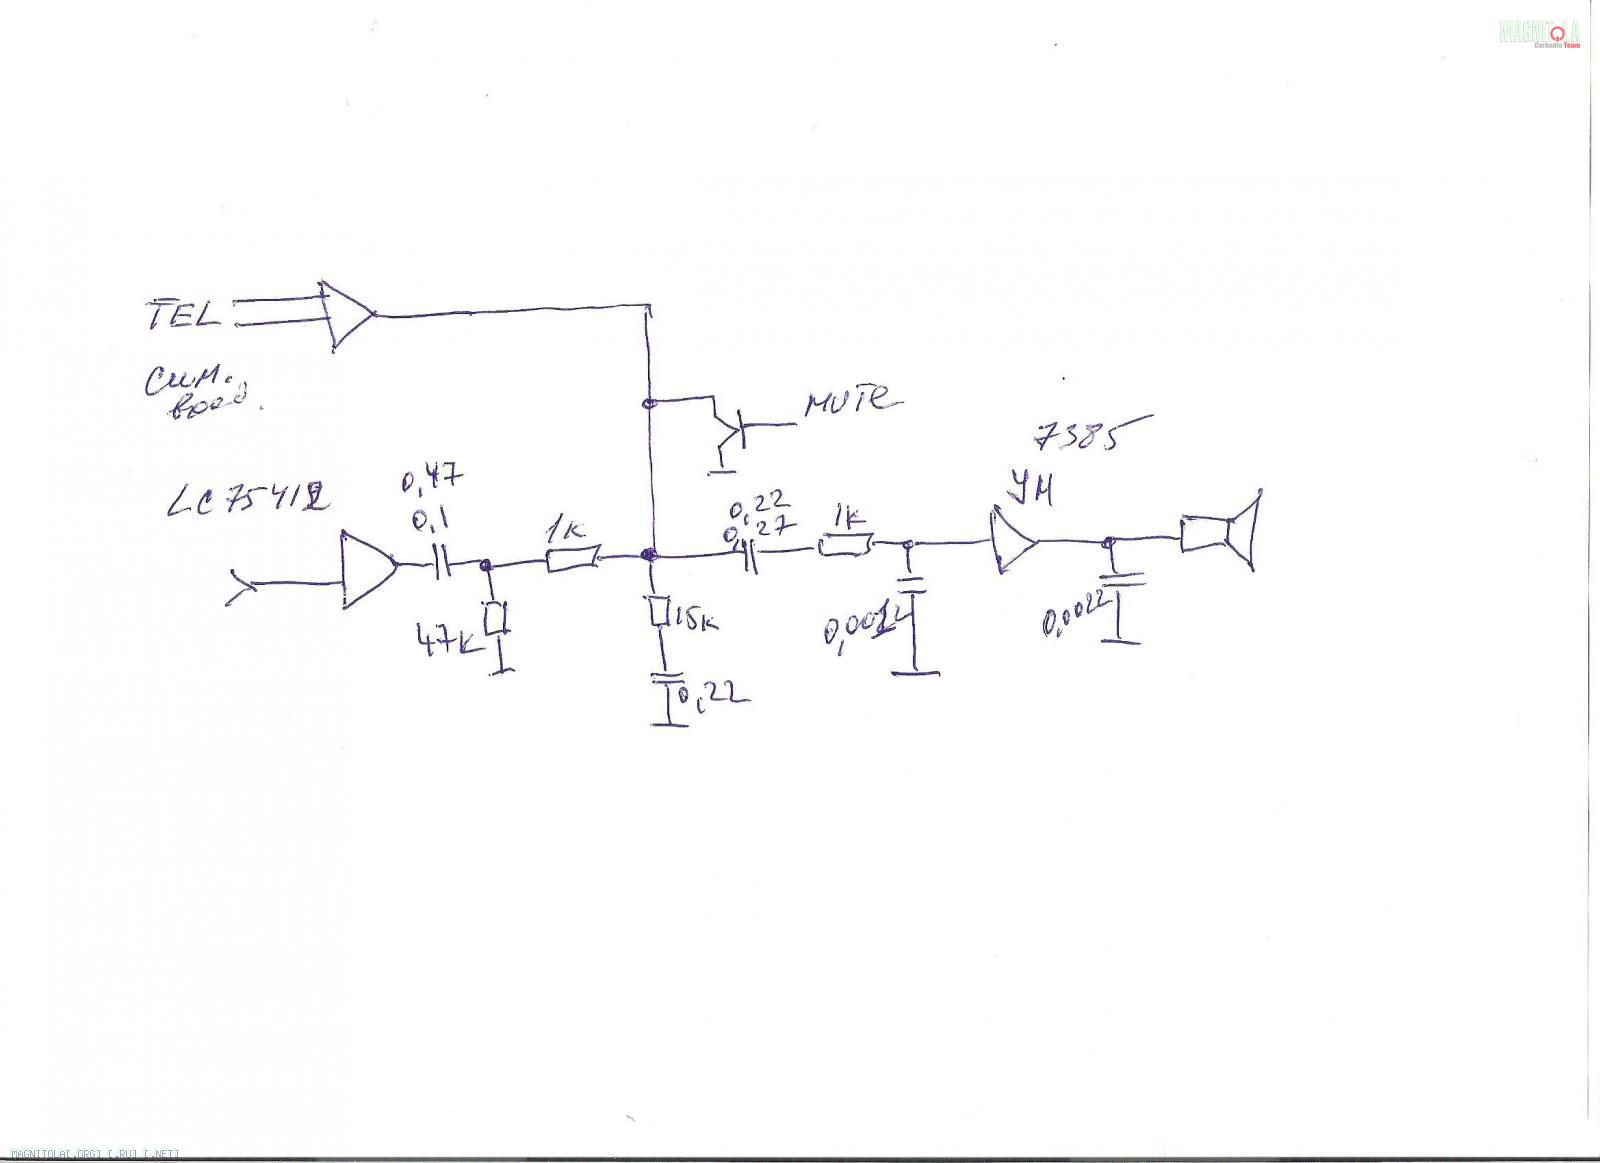 MAGNITOLA
CarAudio Team
TEL
сим.
вход.
MUTE
7385
УМ
LC75412
0,47
0,1
1к
0,22
0,27
1к
47к
15к
0,22
0,0022
MAGNITOLA[.ORG] [.RU] [.NET]